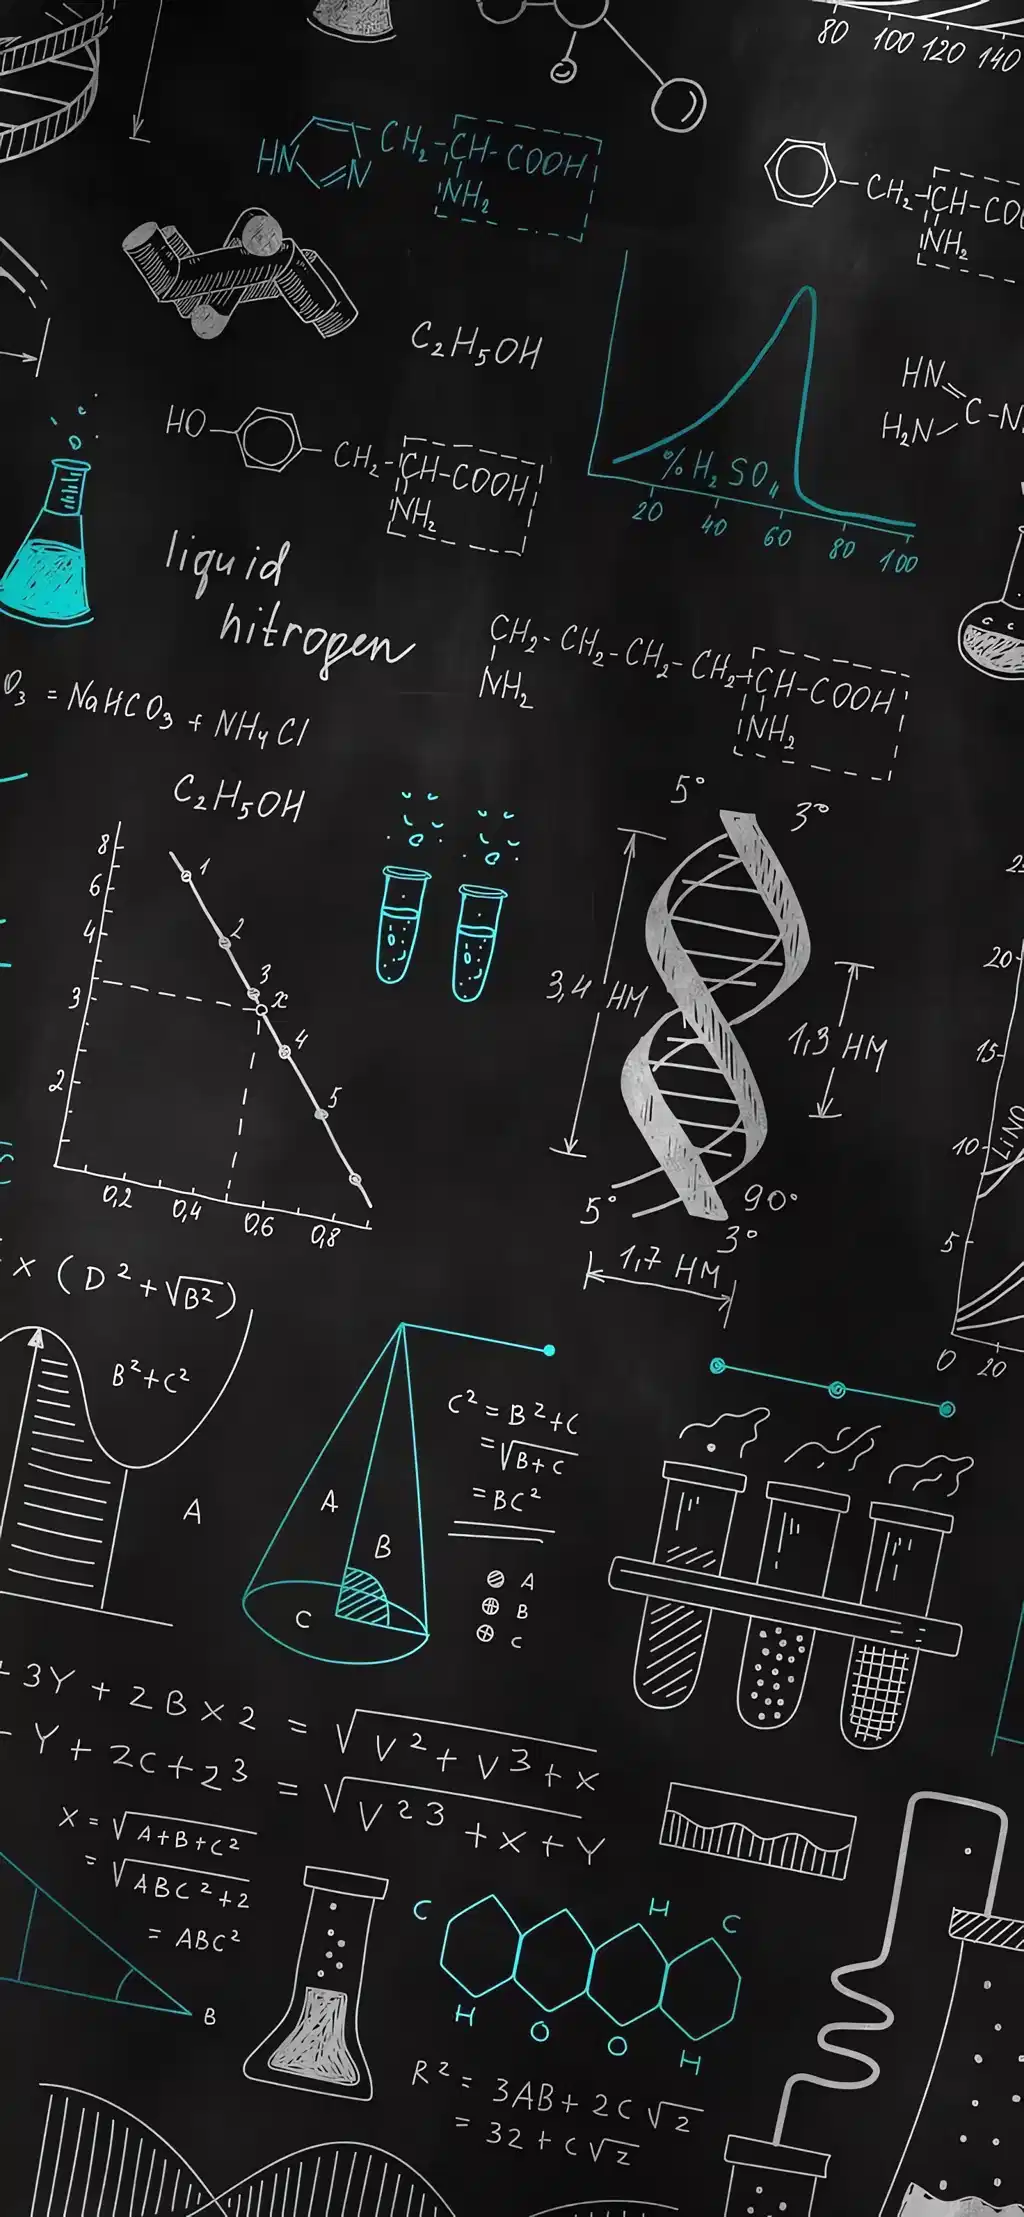 80 100 120 140
HN N CH₂-CH-COOH
NH₂
CH₂-CH-CO
NH₂
C₂H₅OH
HN
C-N
H₂N
HO CH₂-CH-COOH
NH₂
% H₂SO₄
20 40 60 80 100
liquid
hitrogen
CH₂-CH₂-CH₂-CH₂-CH-COOH
NH₂ NH₂
O₃ = NaHCO₃ + NH₄Cl
C₂H₅OH
8
6
4
3
2
1
2
3
x
4
5
0,2 0,4 0,6 0,8
5° 3°
3,4 HM
1,3 HM
5° 90°
3°
1,7 HM
20
15
10
5
0 20
LiNO
x (D² + √B²)
B²+C²
A
A
B
C
C² = B²+C
= √B+C
= BC²
A
B
C
3Y + 2B × 2 = √V² + V³ + X
Y + 2C + 2³ = √V²³ + X + Y
X = √A+B+C²
= √ABC²+2
= ABC²
B
C H C
H O O H
R² = 3AB + 2C√2
= 32 + C√2